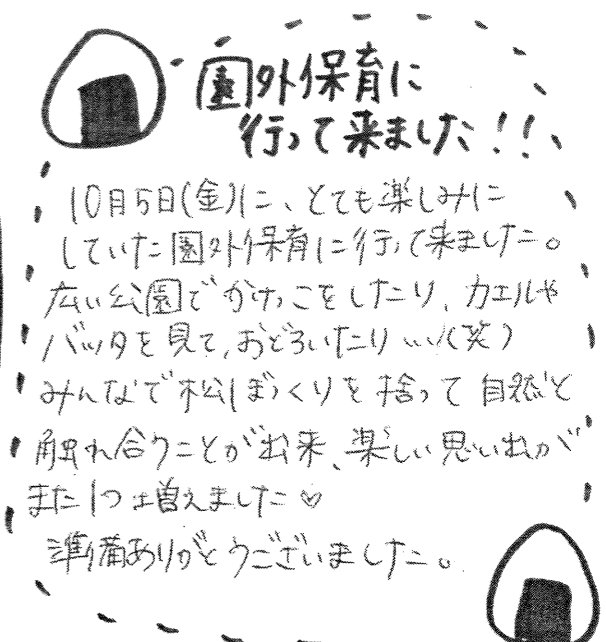 園外保育に
行って来ました!!
10月5日(金)に、とても楽しみに
していた園外保育に行って来ました。
広い公園でかけっこをしたり、カエルや
バッタを見て、おどろいたり…(笑)
みんなで松ぼっくりを拾って自然と
触れ合うことが出来、楽しい思い出が
また1つ増えました♡
準備ありがとうございました。